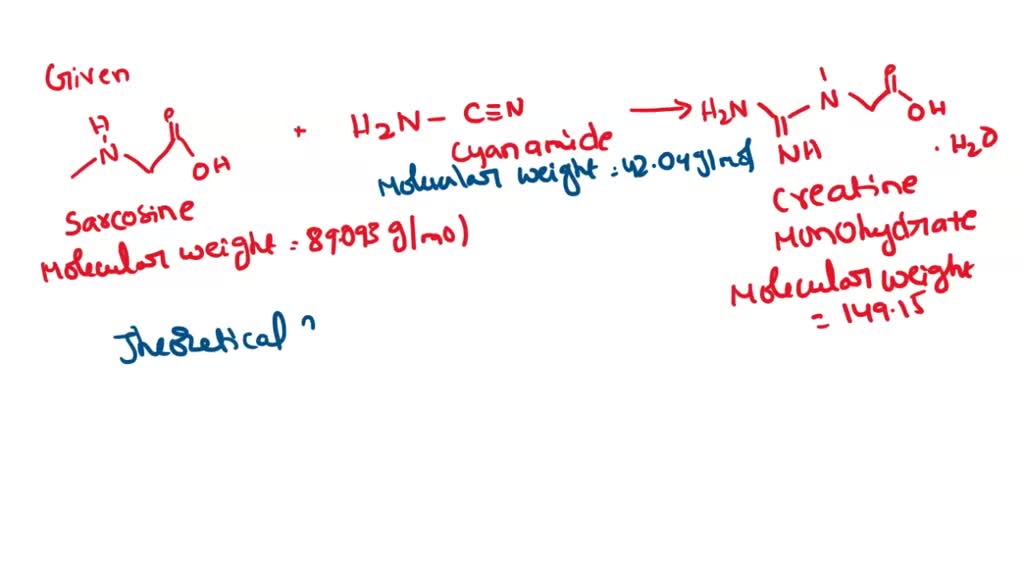 Given
H
N
O
OH
Sarcosine
Molecular weight = 89.093 g/mol
+
H2N - C≡N
Cyanamide
Molecular weight = 42.04 g/mol
→
H2N
N
O
OH
NH
. H2O
Creatine
Monohydrate
Molecular weight
= 149.15
Theoretical